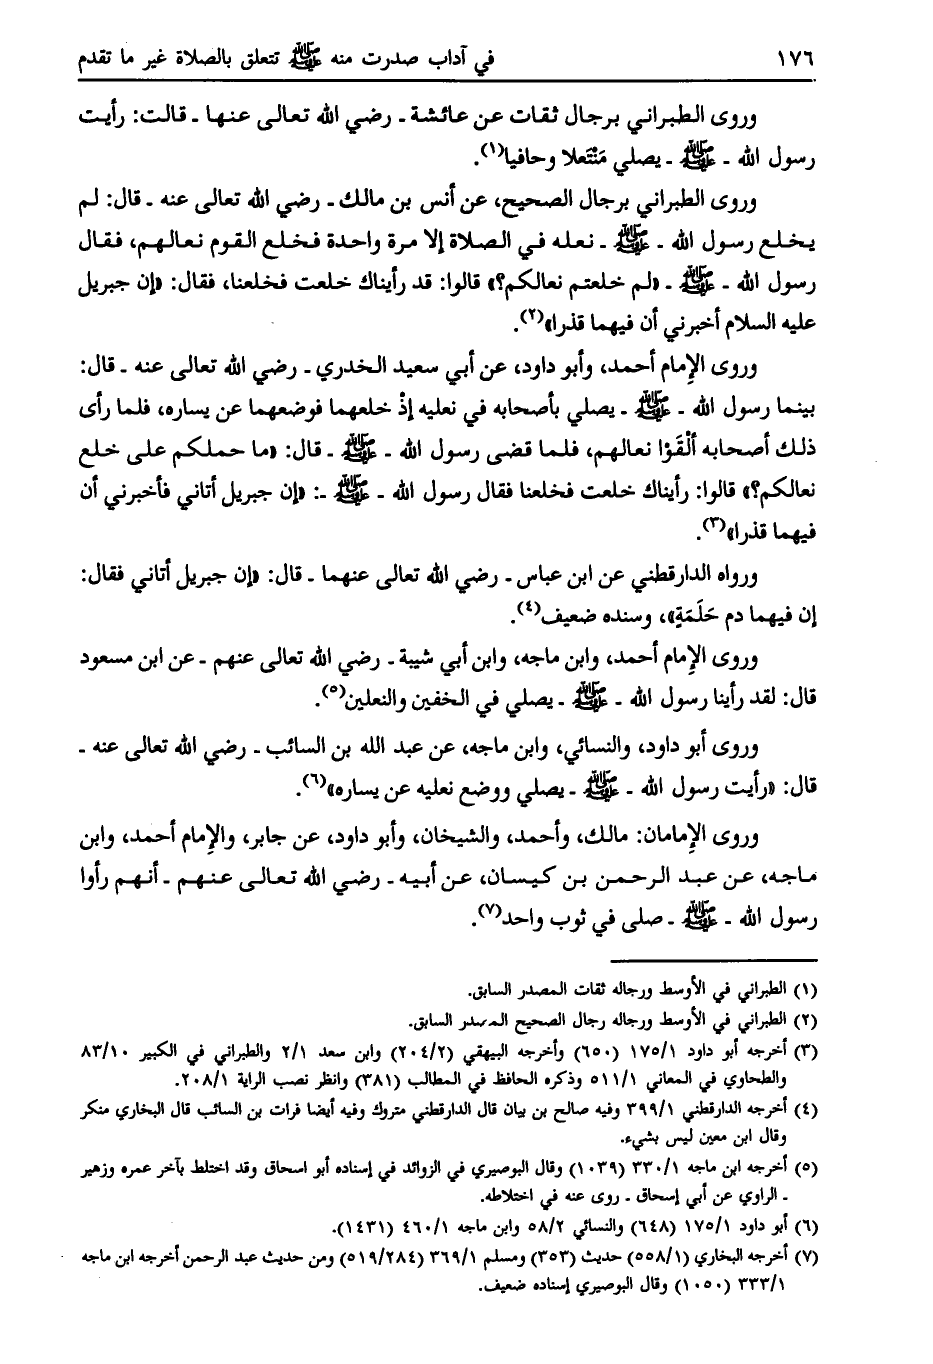 ١٧٦ في آداب صدرت منه ﷺ تتعلق بالصلاة غير ما تقدم
وروى الطبراني برجال ثقات عن عائشة ـ رضي الله تعالى عنها ـ قالت: رأيت
رسول الله ـ ﷺ ـ يصلي مَنْتَعلا وحافيا(١).
وروى الطبراني برجال الصحيح، عن أنس بن مالك ـ رضي الله تعالى عنه ـ قال: لم
يخلع رسول الله ـ ﷺ ـ نعله في الصلاة إلا مرة واحدة فخلع القوم نعالهم، فقال
رسول الله ـ ﷺ ـ «لم خلعتم نعالكم؟» قالوا: قد رأيناك خلعت فخلعنا، فقال: «إن جبريل
عليه السلام أخبرني أن فيهما قذرا»(٢).
وروى الإمام أحمد، وأبو داود، عن أبي سعيد الخدري ـ رضي الله تعالى عنه ـ قال:
بينما رسول الله ـ ﷺ ـ يصلي بأصحابه في نعليه إذْ خلعهما فوضعهما عن يساره، فلما رأى
ذلك أصحابه ألْقَوْا نعالهم، فلما قضى رسول الله ـ ﷺ ـ قال: «ما حملكم على خلع
نعالكم؟» قالوا: رأيناك خلعت فخلعنا فقال رسول الله ـ ﷺ ـ: «إن جبريل أتاني فأخبرني أن
فيهما قذرا»(٣).
ورواه الدارقطني عن ابن عباس ـ رضي الله تعالى عنهما ـ قال: «إن جبريل أتاني فقال:
إن فيهما دم حَلَمَةٍ»، وسنده ضعيف(٤).
وروى الإمام أحمد، وابن ماجه، وابن أبي شيبة ـ رضي الله تعالى عنهم ـ عن ابن مسعود
قال: لقد رأينا رسول الله ـ ﷺ ـ يصلي في الخفين والنعلين(٥).
وروى أبو داود، والنسائي، وابن ماجه، عن عبد الله بن السائب ـ رضي الله تعالى عنه ـ
قال: «رأيت رسول الله ـ ﷺ ـ يصلي ووضع نعليه عن يساره»(٦).
وروى الإمامان: مالك، وأحمد، والشيخان، وأبو داود، عن جابر، والإمام أحمد، وابن
ماجه، عن عبد الرحمن بن كيسان، عن أبيه ـ رضي الله تعالى عنهم ـ أنهم رأوا
رسول الله ـ ﷺ ـ صلى في ثوب واحد(٧).
(١) الطبراني في الأوسط ورجاله ثقات المصدر السابق.
(٢) الطبراني في الأوسط ورجاله رجال الصحيح المصدر السابق.
(٣) أخرجه أبو داود ١٧٥/١ (٦٥٠) وأخرجه البيهقي (٢٠٤/٢) وابن سعد ٢/١ والطبراني في الكبير ٨٣/١٠
والطحاوي في المعاني ٥١١/١ وذكره الحافظ في المطالب (٣٨١) وانظر نصب الراية ٢٠٨/١.
(٤) أخرجه الدارقطني ٣٩٩/١ وفيه صالح بن بيان قال الدارقطني متروك وفيه أيضا فرات بن السائب قال البخاري منكر
وقال ابن معين ليس بشيء.
(٥) أخرجه ابن ماجه ٣٣٠/١ (١٠٣٩) وقال البوصيري في الزوائد في إسناده أبو اسحاق وقد اختلط بآخر عمره وزهير
ـ الراوي عن أبي إسحاق ـ روى عنه في اختلاطه.
(٦) أبو داود ١٧٥/١ (٦٤٨) والنسائي ٥٨/٢ وابن ماجه ٤٦٠/١ (١٤٣١).
(٧) أخرجه البخاري (٥٥٨/١) حديث (٣٥٣) ومسلم ٣٦٩/١ (٥١٩/٢٨٤) ومن حديث عبد الرحمن أخرجه ابن ماجه
٣٣٣/١ (١٠٥٠) وقال البوصيري إسناده ضعيف.